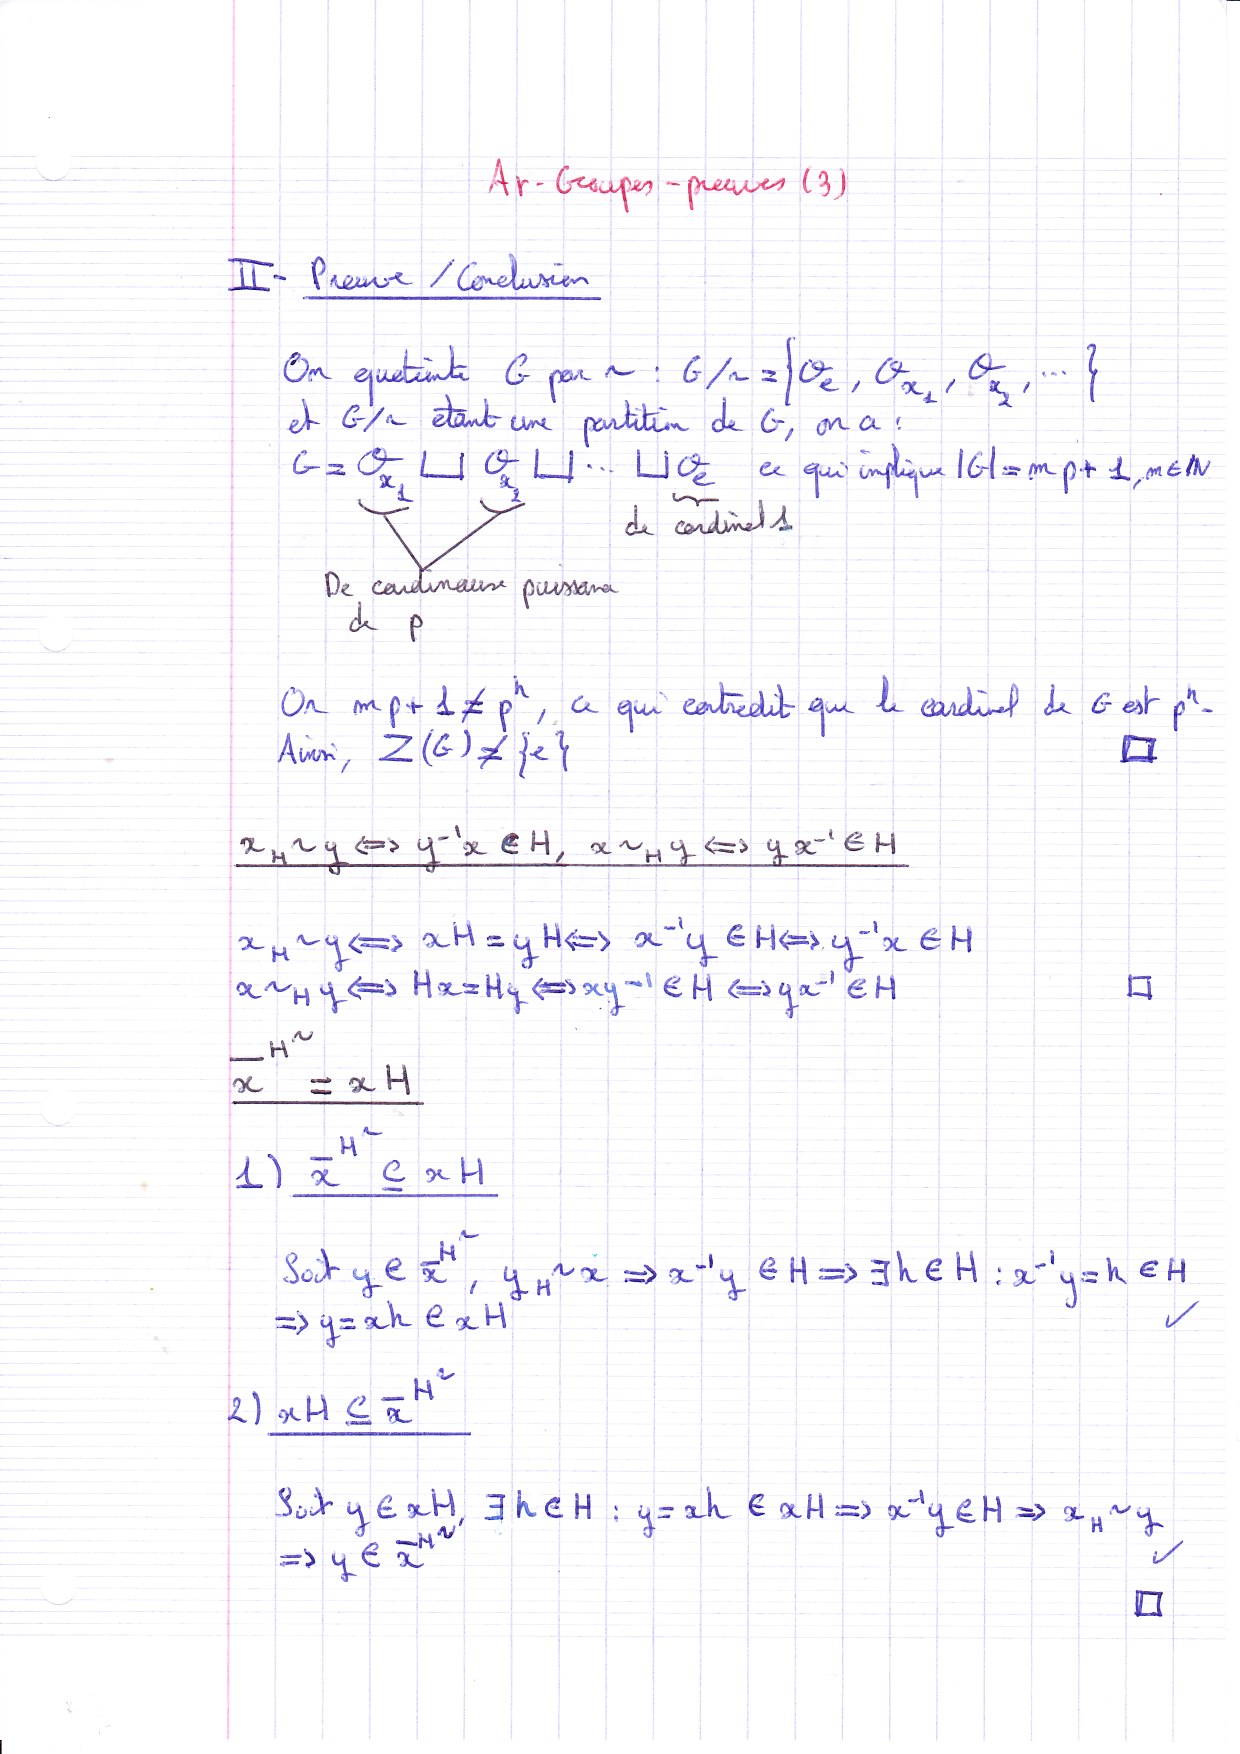 Ar-Groupes-preuves (3)
II- Preuve / Conclusion
On quotiente G par ~ : G/~ = {O_e, O_{x_1}, O_{x_2}, ...}
et G/~ étant une partition de G, on a :
G = O_{x_1} ⊔ O_{x_2} ⊔ ... ⊔ O_e ce qui implique |G| = mp + 1, m ∈ ℕ
de cardinal 1
De cardinaux puissance
de p
Or mp + 1 ≠ p^n, ce qui contredit que le cardinal de G est p^n.
Ainsi, Z(G) ≠ {e} □
x _H~ y ⟺ y⁻¹x ∈ H, x ~_H y ⟺ yx⁻¹ ∈ H
x _H~ y ⟺ xH = yH ⟺ x⁻¹y ∈ H ⟺ y⁻¹x ∈ H
x ~_H y ⟺ Hx = Hy ⟺ xy⁻¹ ∈ H ⟺ yx⁻¹ ∈ H □
x̄^{H~} = xH
1) x̄^{H~} ⊆ xH
Soit y ∈ x̄^{H~}, y _H~ x ⟹ x⁻¹y ∈ H ⟹ ∃h ∈ H : x⁻¹y = h ∈ H
⟹ y = xh ∈ xH ✓
2) xH ⊆ x̄^{H~}
Soit y ∈ xH, ∃h ∈ H : y = xh ∈ xH ⟹ x⁻¹y ∈ H ⟹ x _H~ y
⟹ y ∈ x̄^{H~} ✓
□